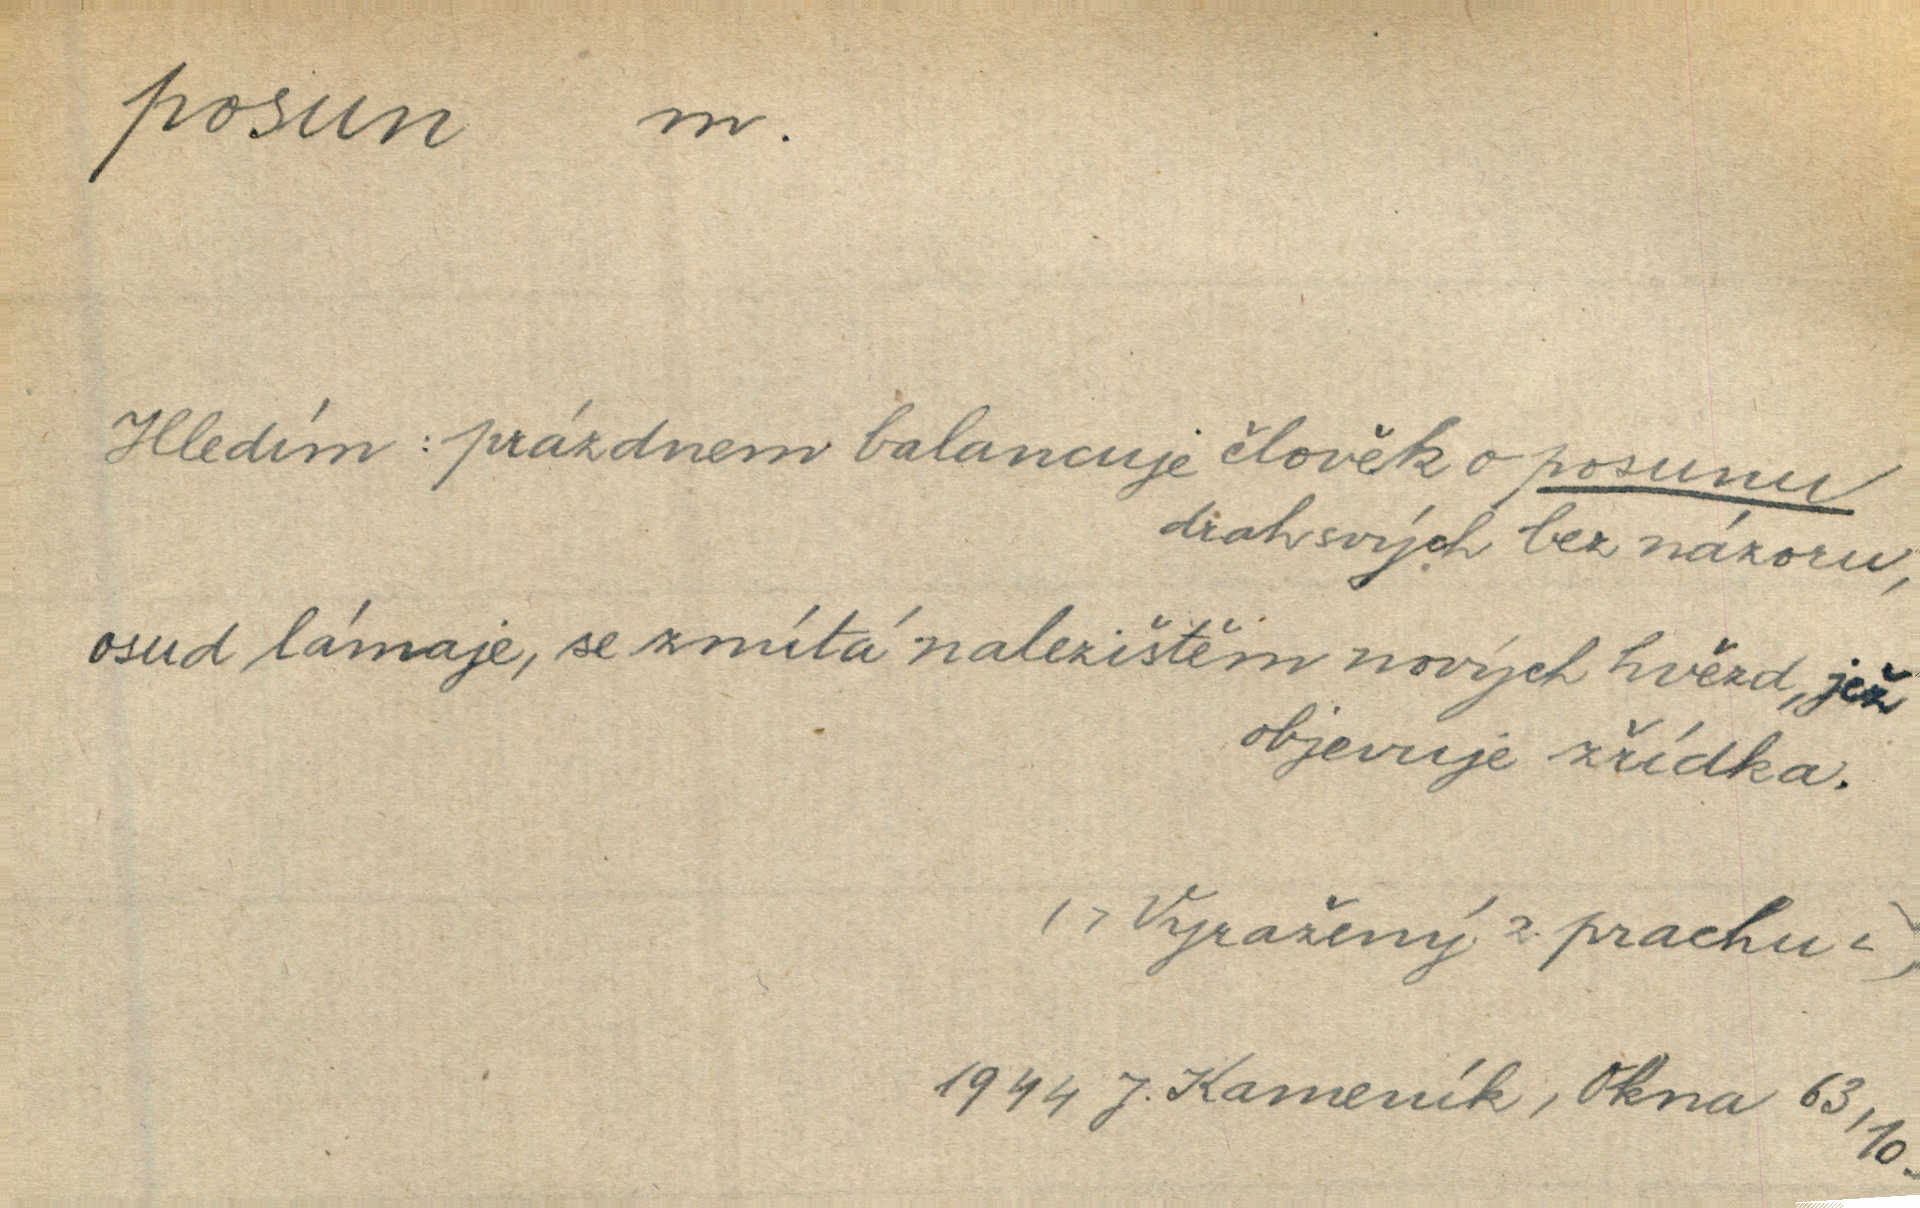 posun m.
Hledím: prázdnem balancuje člověk o posunu
drah svých bez názoru,
osud lámaje, se zmítá nalezištěm nových hvězd, jež
objevuje zřídka.
(»Vyražený z prachu«)
1944 J. Kameník, Okna 63,
10.